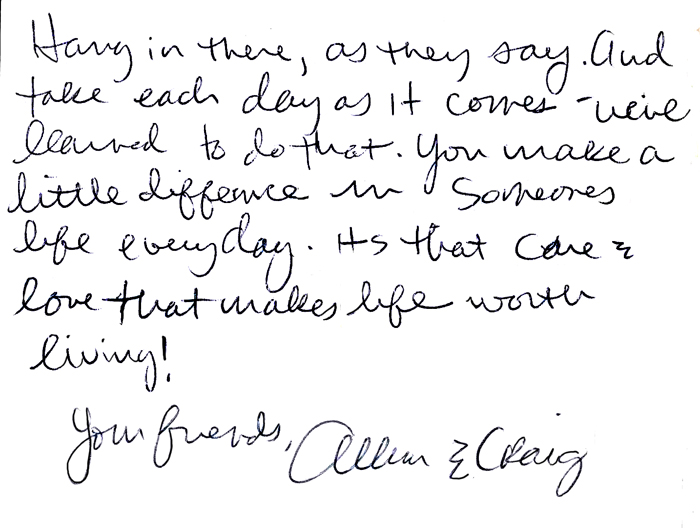 Hang in there, as they say. And
take each day as it comes - we've
learned to do that. You make a
little difference in someones
life everyday. Its that care &
love that makes life worth
living!
Your friends, Allen & Craig